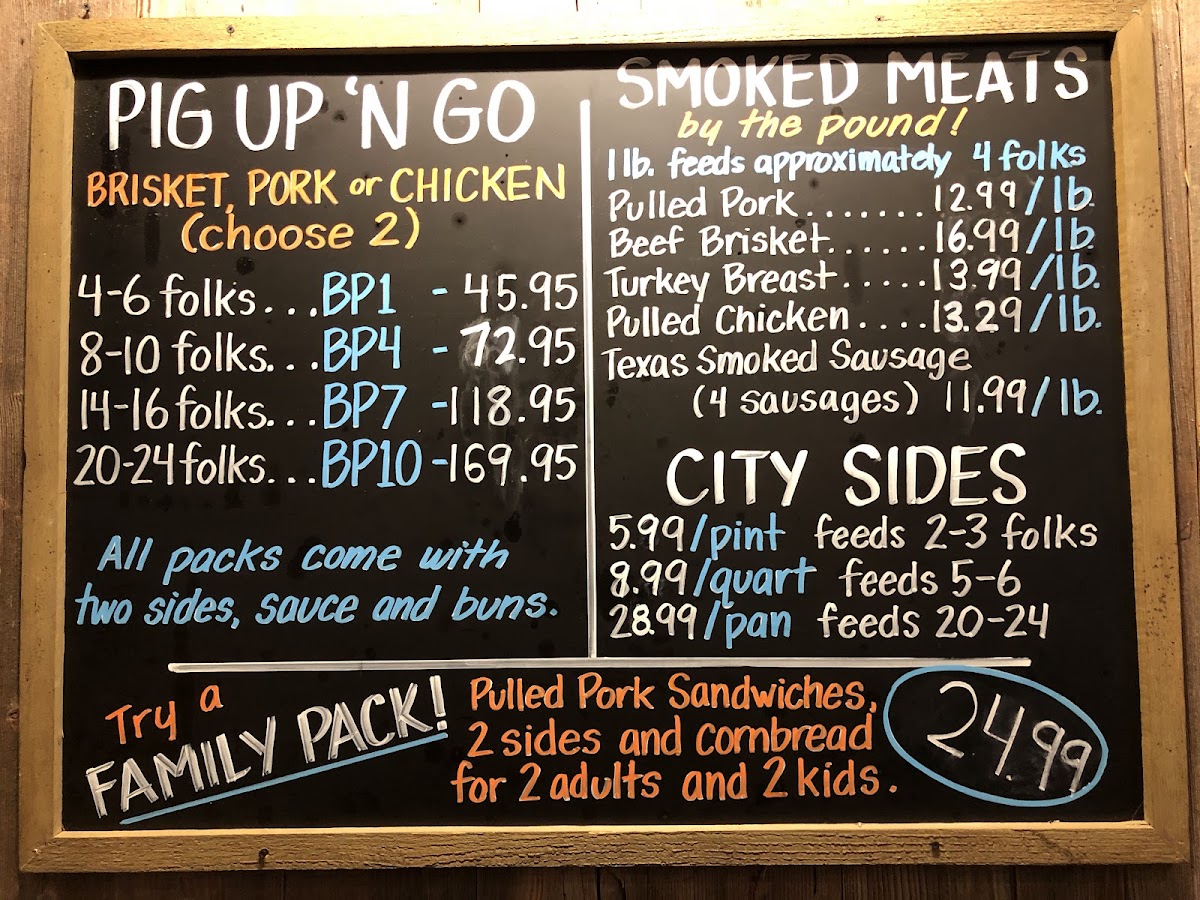 PIG UP 'N GO
BRISKET, PORK or CHICKEN
(choose 2)
4-6 folks...BP1 - 45.95
8-10 folks...BP4 - 72.95
14-16 folks...BP7 -118.95
20-24 folks...BP10 -169.95
All packs come with
two sides, sauce and buns.
SMOKED MEATS
by the pound!
1 lb. feeds approximately 4 folks
Pulled Pork.......12.99/lb.
Beef Brisket......16.99/lb.
Turkey Breast.....13.99/lb.
Pulled Chicken....13.29/lb.
Texas Smoked Sausage
(4 sausages) 11.99/lb.
CITY SIDES
5.99/pint feeds 2-3 folks
8.99/quart feeds 5-6
28.99/pan feeds 20-24
Try a
FAMILY PACK!
Pulled Pork Sandwiches,
2 sides and cornbread
for 2 adults and 2 kids.
24.99